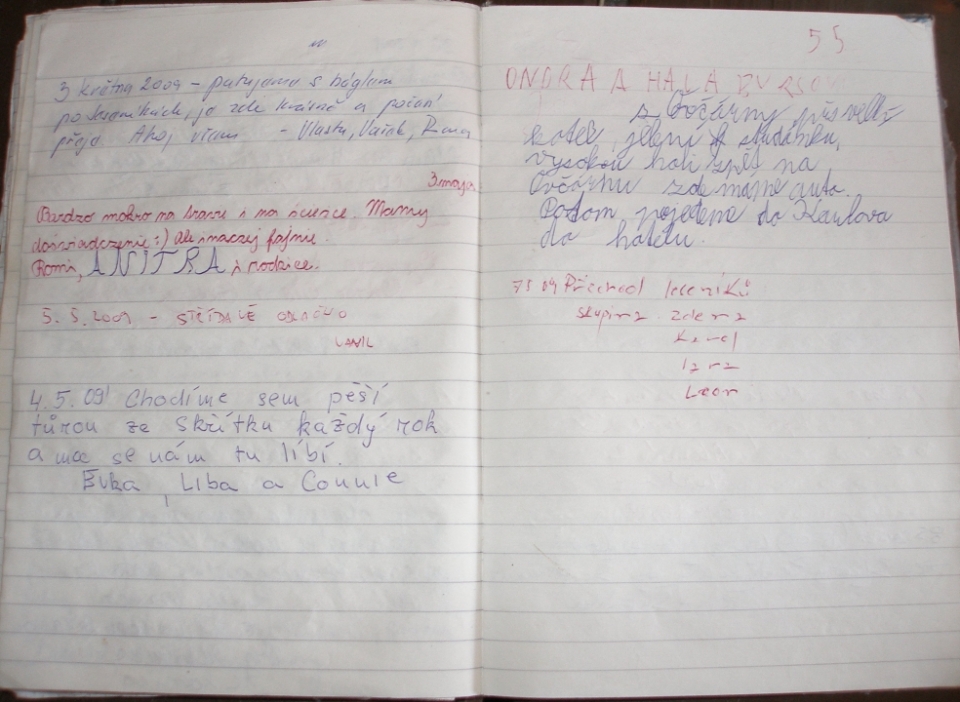 3 května 2009 - putujeme s báglem
po Jeseníkách, je zde krásně a počasí
přeje. Ahoj všem - Vlasta, Vašek, Rena
3 maja
Bardzo mokro na trawie i na ścieżce. Mamy
doświadczenie :) Ale inaczej fajnie.
Romi, ANITRA i rodzice.
5.5.2009 - STŘÍDAVĚ OBLAČNO
4.5.09 Chodíme sem pěší
túrou ze Skřítku každý rok
a moc se nám tu líbí.
Evka, Liba a Connie
55
ONDRA A HÁLA
z Ovčárny přes velký
kotel, jelení studánku,
vysokou holi zpět na
Ovčárnu zde máme auto.
Potom pojedeme do Karlova
do hotelu.
7.5 09 Přechod Jeseníků
skupina Zdena
Karel
Jara
Leon